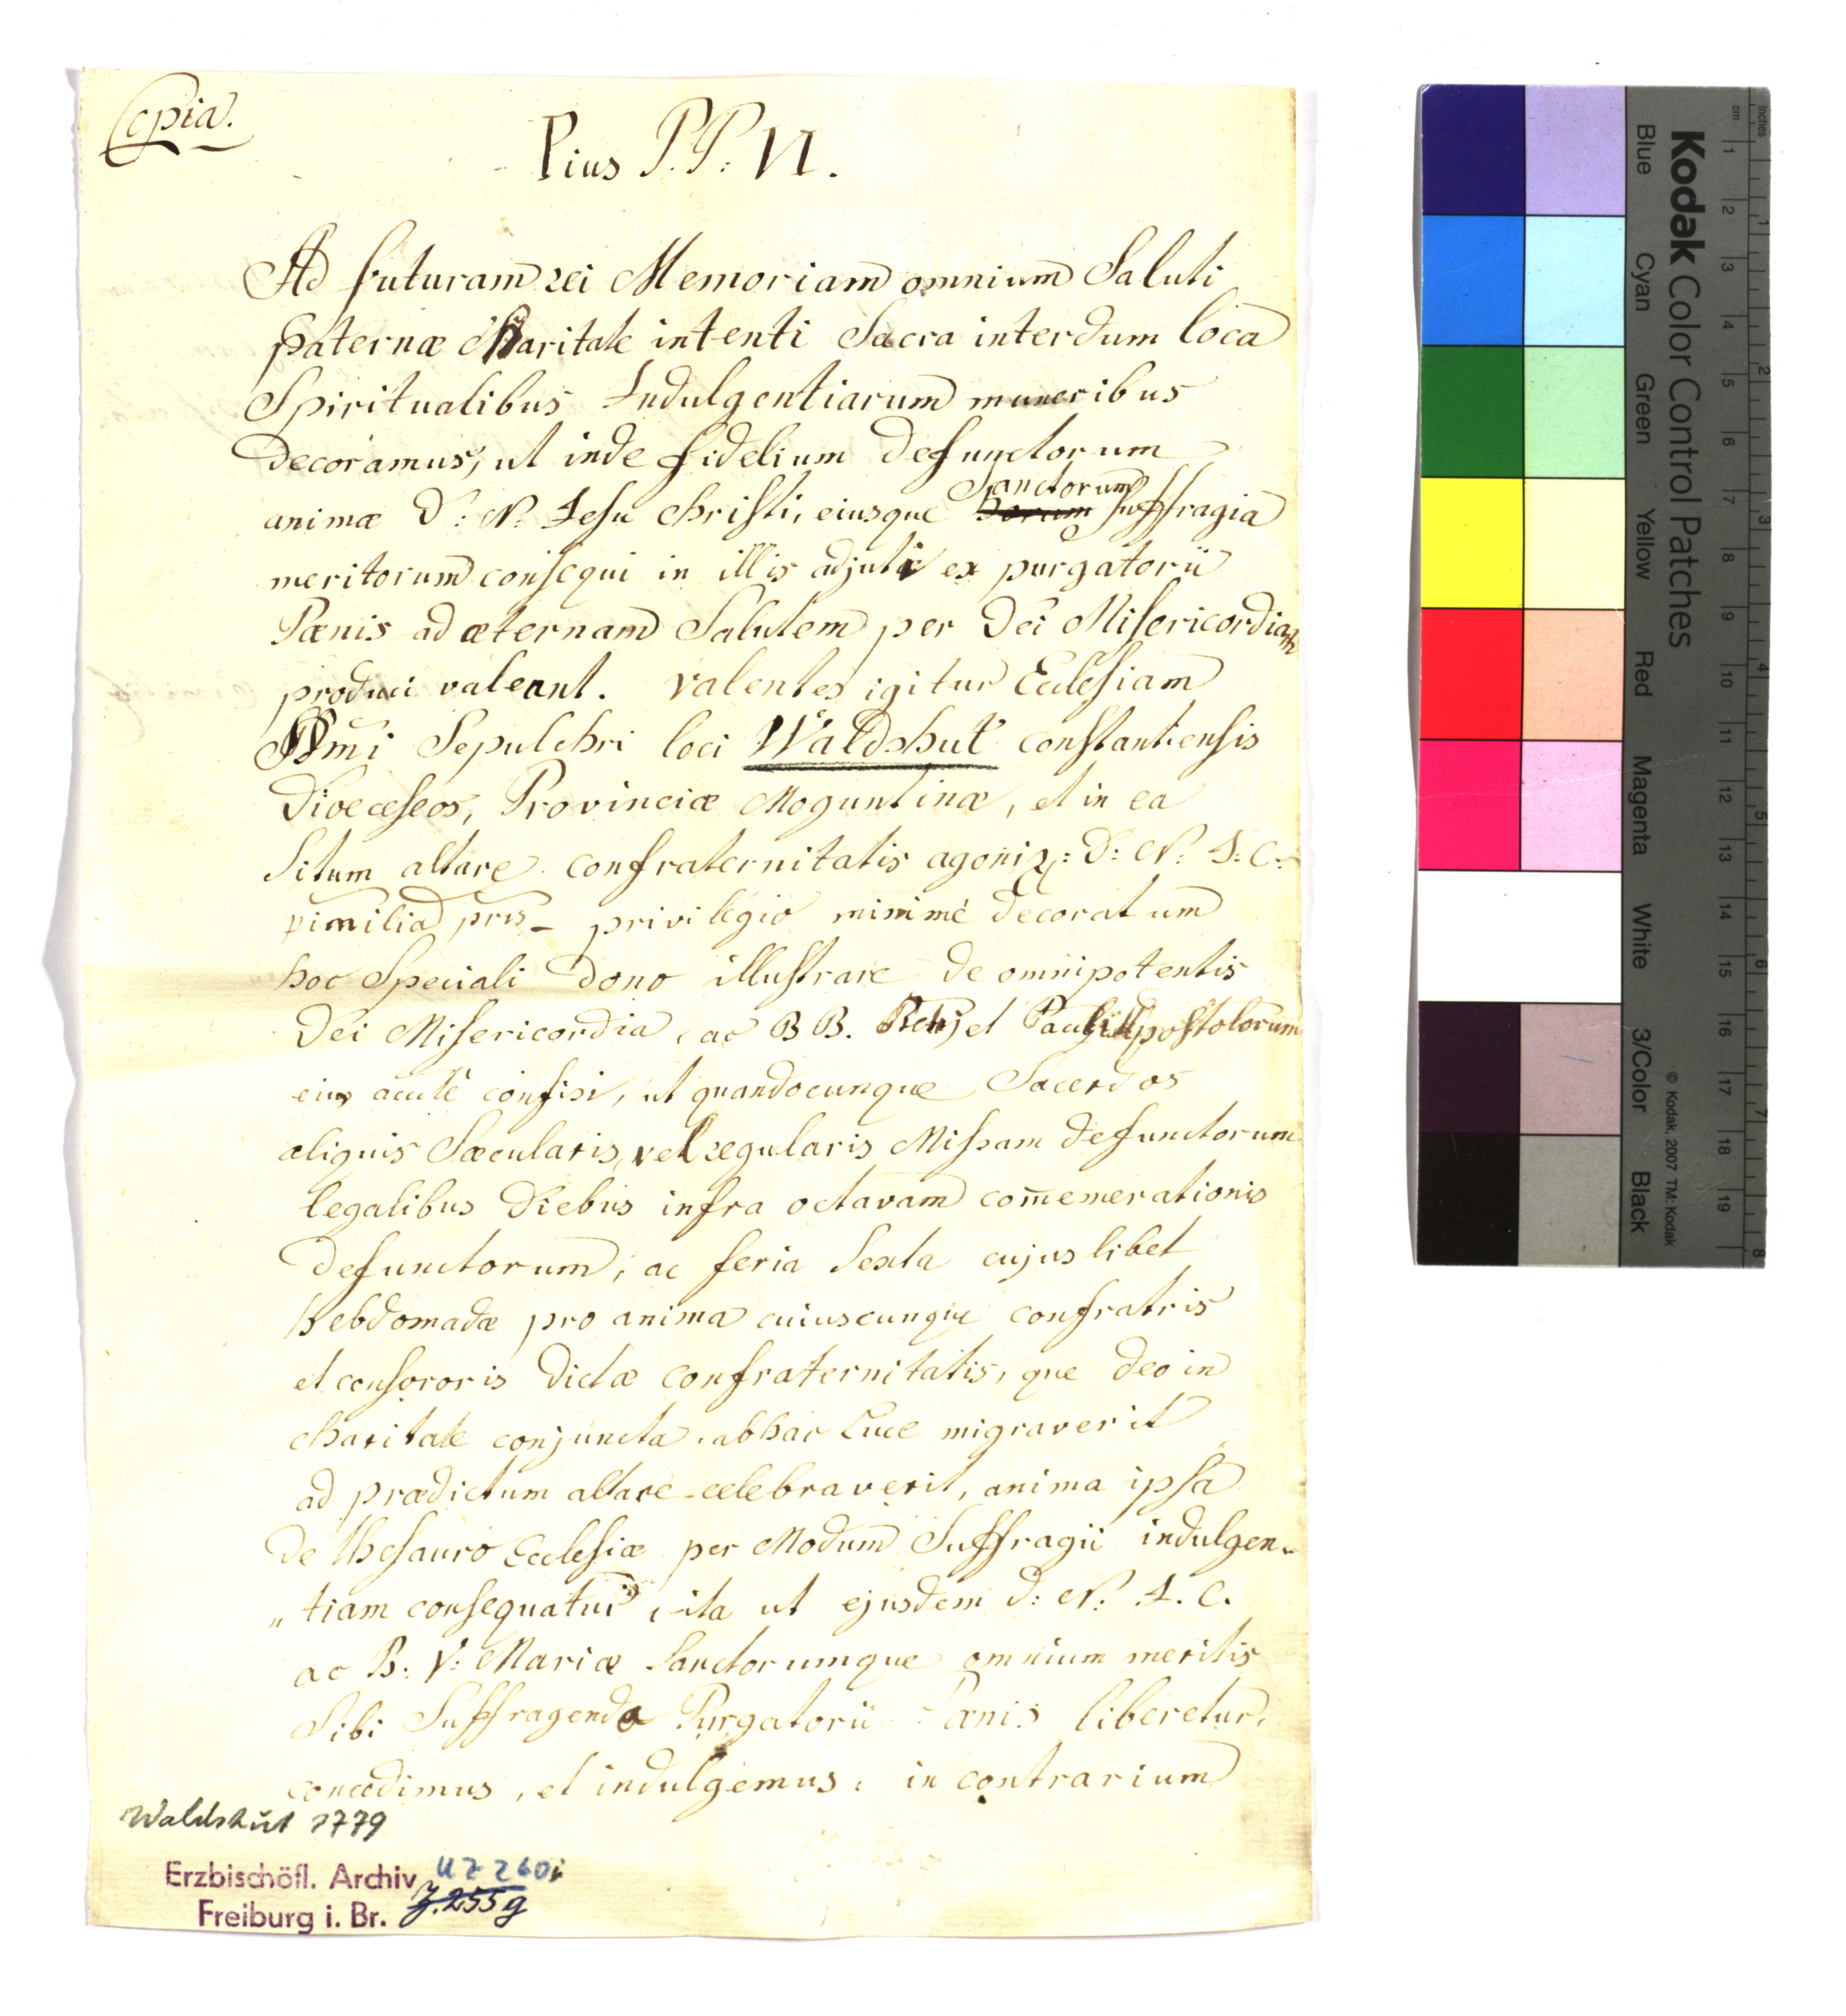 Copia.
Pius P.P: VI.
Ad futuram rei Memoriam omnium Saluti
paternæ Charitate intenti Sacra interdum loca
Spiritualibus Indulgentiarum muneribus
decoramus, ut inde fidelium defunctorum
animæ D: N: Jesu Christi, eiusque Sanctorum suffragia
meritorum consequi in illis adjuti ex purgatorii
Pœnis ad æternam Salutem per Dei Misericordiam
produci valeant. Valentes igitur Ecclesiam
SSmi Sepulchri loci Waldshut constantiensis
Dioeceseos, Provinciæ Moguntinæ, et in ea
Situm altare confraternitatis agoniz: D: N: J: C:
privilegio minimé decoratum
hoc Speciali dono illustrare de omnipotentis
Dei Misericordia, ac BB. Petri et Pauli Apostolorum
eius confisi, ut quandocunque Sacerdos
aliquis Sæcularis, vel regularis Missam defunctorum
legalibus diebus infra octavam com̄emerationis
defunctorum, ac feria Sexta cujuslibet
hebdomadæ pro anima cuiuscunque confratris
et consororis dictæ confraternitatis, que Deo in
charitate conjuncta, ab hac Luce migraverit
ad prædictum altare celebraverit, anima ipsa
de thesauro Ecclesiæ per Modum Suffragii indulgen-
„tiam consequatur, ita ut ejusdem D: N: J. C.
ac B: V: Mariæ Sanctorumque omnium meritis
Sibi Suffragenda Purgatorii Pœnis liberetur,
concedimus, et indulgemus, in contrarium
Waldshut 1779
Erzbischöfl. Archiv UZ 260i
Freiburg i. Br. Z.255g
Kodak Color Control Patches
© Kodak, 2007 TM: Kodak
Blue Cyan Green Yellow Red Magenta White 3/Color Black
inches 1 2 3 4 5 6 7 8
cm 1 2 3 4 5 6 7 8 9 10 11 12 13 14 15 16 17 18 19